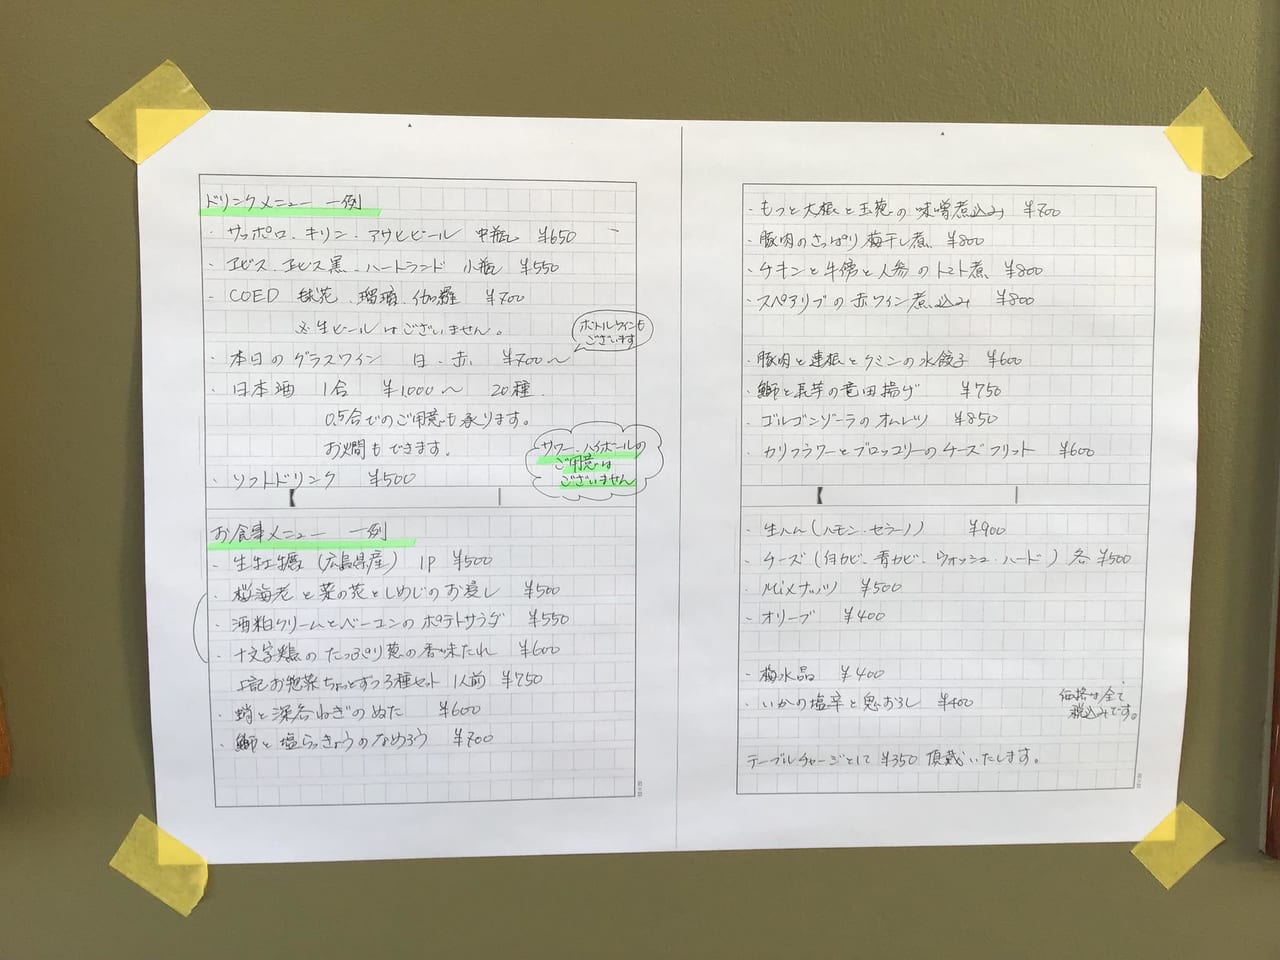 ドリンクメニュー 一例
・サッポロ、キリン、アサヒビール 中瓶 ¥650
・ヱビス、ヱビス黒、ハートランド 小瓶 ¥550
・COEDO 毬花、瑠璃、伽羅 ¥700
※生ビールはございません。
ボトルワインも
ございます
・本日のグラスワイン 白、赤 ¥700〜
・日本酒 1合 ¥1,000〜 20種
0.5合でのご用意も承ります。
お燗もできます。
サワー、ハイボールの
ご用意は
ございません
・ソフトドリンク ¥500
お食事メニュー 一例
・生牡蠣(広島県産) 1P ¥500
・桜海老と菜の花としめじのお浸し ¥500
・酒粕クリームとベーコンのポテトサラダ ¥550
・十文字鶏のたっぷり葱の香味だれ ¥600
上記お惣菜ちょっとずつ3種セット 1人前 ¥750
・蛸と深谷ねぎのぬた ¥600
・鰤と塩らっきょうのなめろう ¥700
・もつと大根と玉葱の味噌煮込み ¥700
・豚肉のさっぱり梅干し煮 ¥800
・チキンと牛蒡と人参のトマト煮 ¥800
・スペアリブの赤ワイン煮込み ¥800
・豚肉と連根とクミンの水餃子 ¥600
・鰤と長芋の竜田揚げ ¥750
・ゴルゴンゾーラのオムレツ ¥850
・カリフラワーとブロッコリーのチーズフリット ¥600
・生ハム(ハモン・セラーノ) ¥900
・チーズ(白カビ、青カビ、ウォッシュ、ハード) 各¥500
・Mixナッツ ¥500
・オリーブ ¥400
・梅水晶 ¥400
・いかの塩辛と鬼おろし ¥400
価格は全て
税込みです。
テーブルチャージとして¥350頂戴いたします。